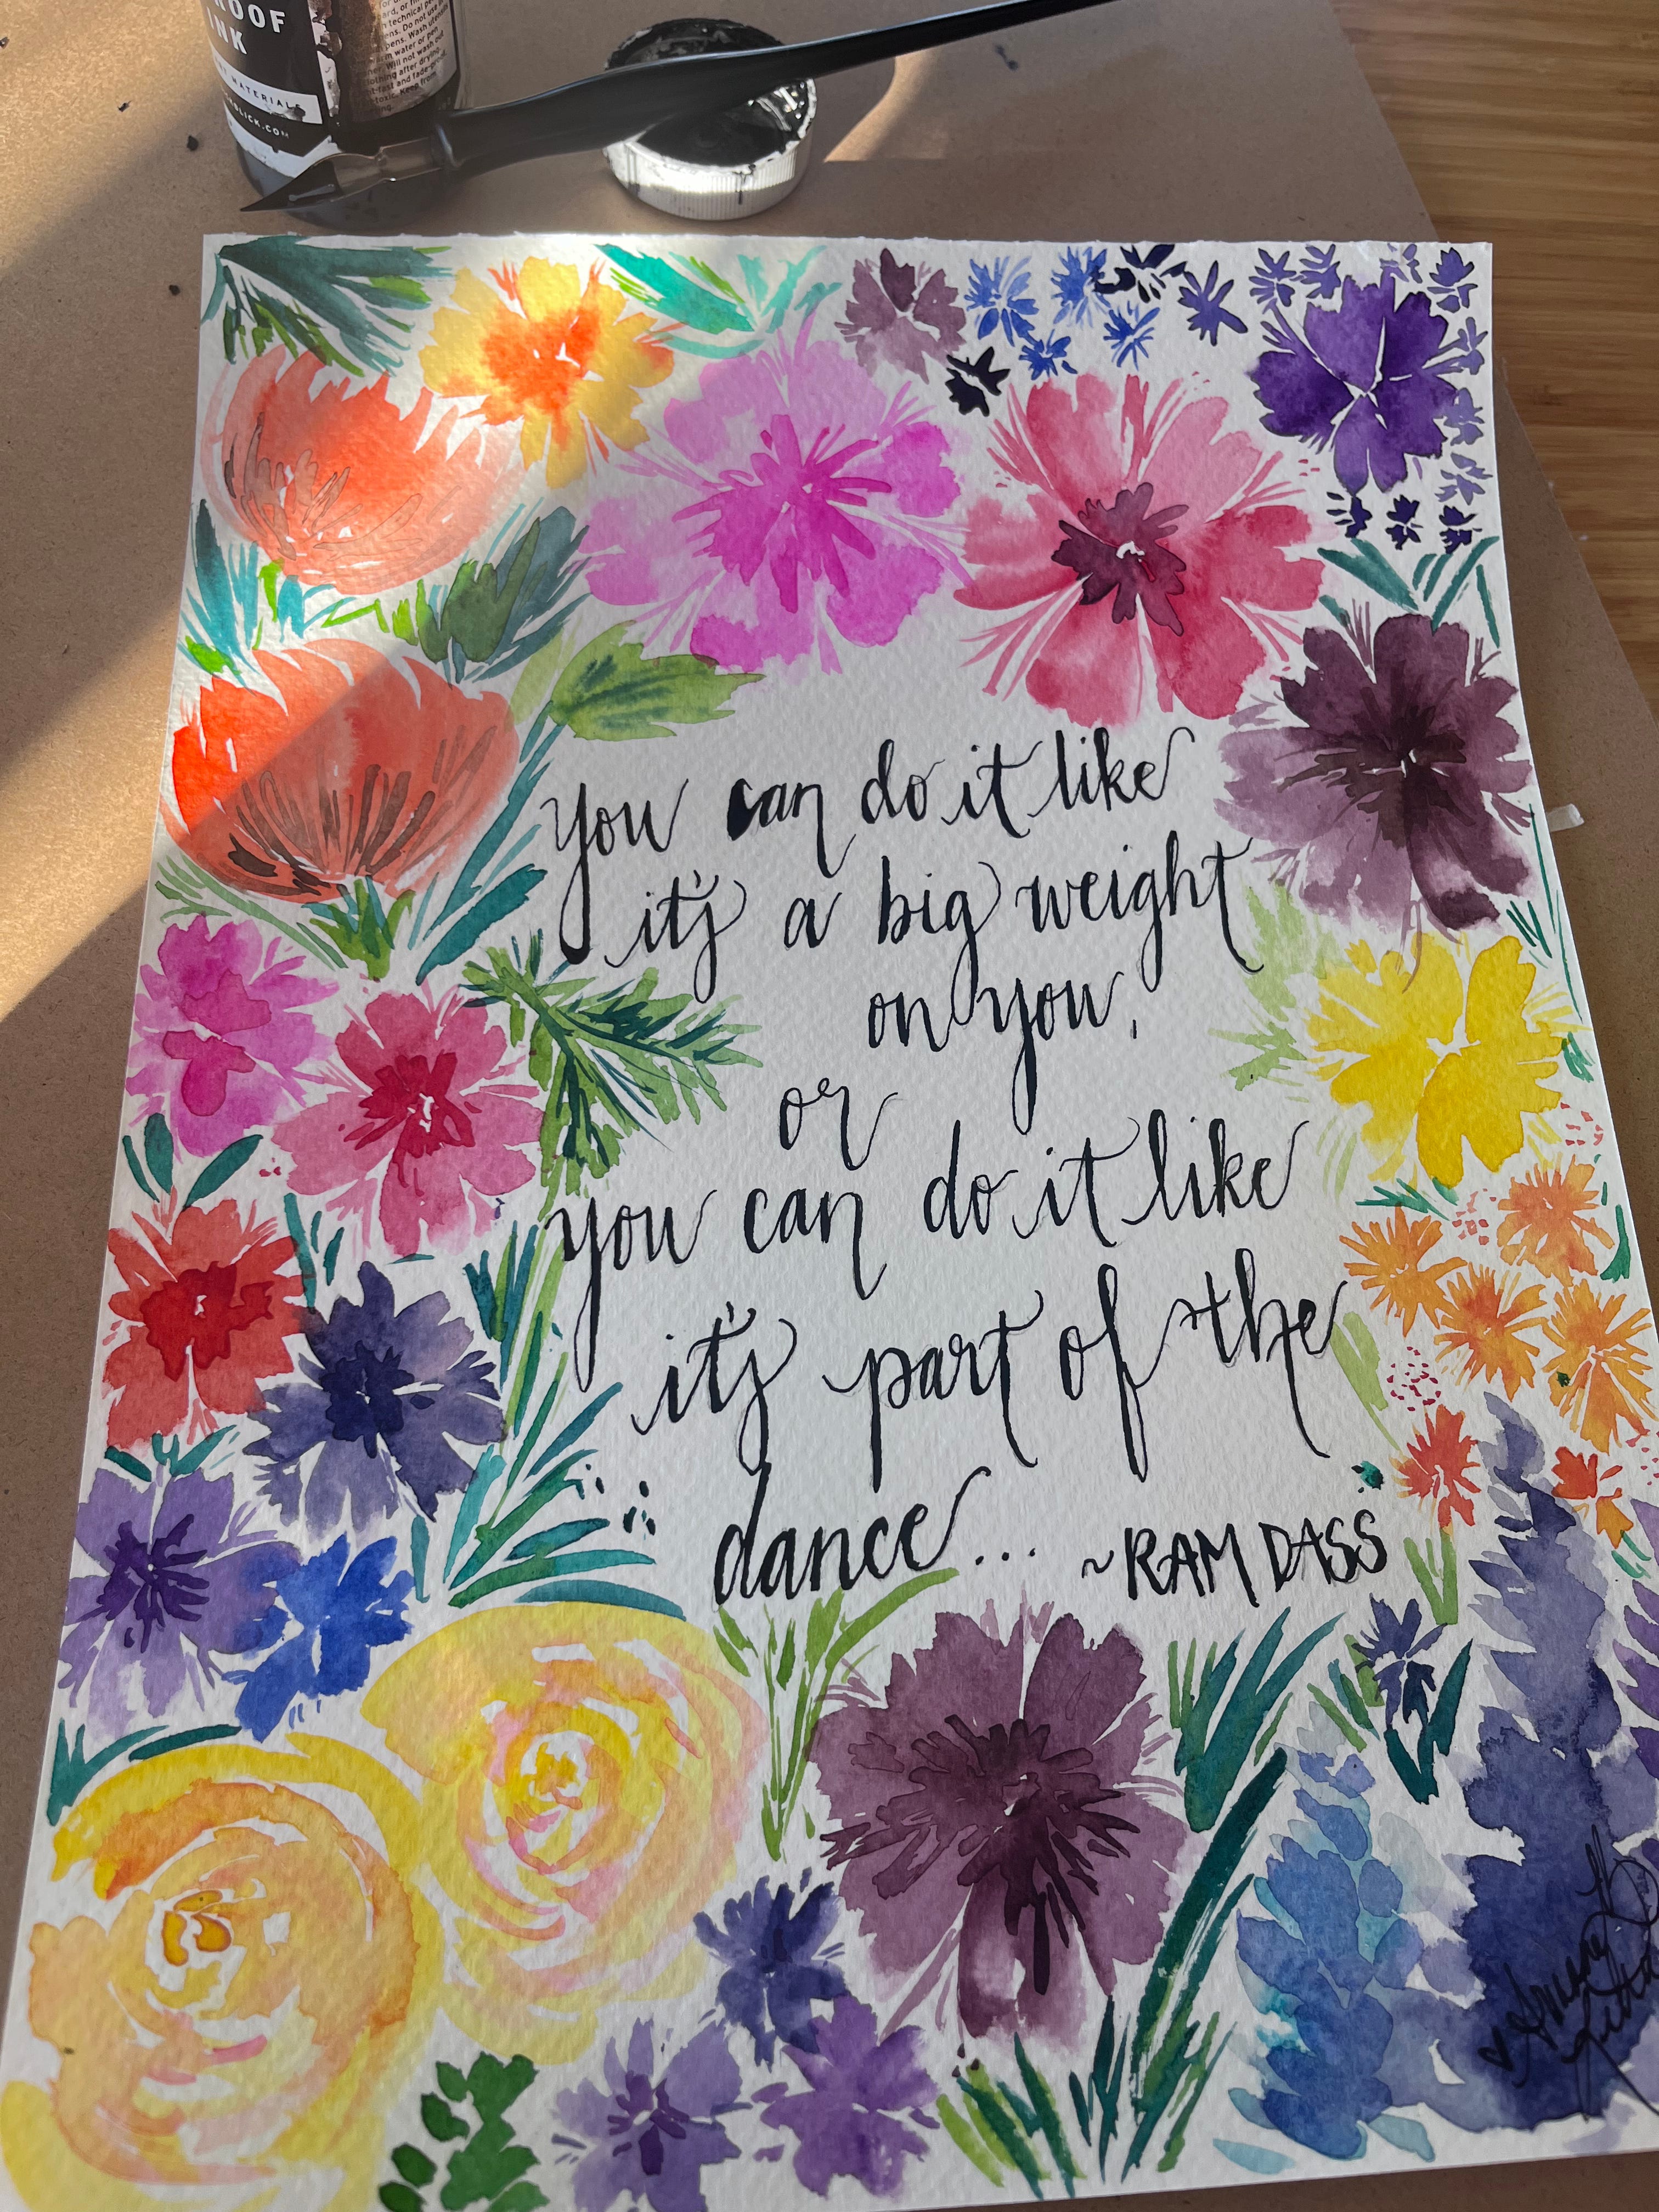 ROOF
INK
MATERIALS
LICK.COM
You can do it like
it's a big weight
on you,
or
you can do it like
it's part of the
dance... ~RAM DASS